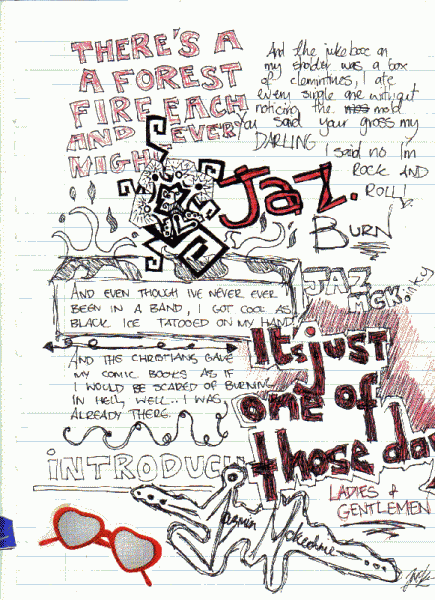 THERE'S A
A FOREST
FIRE EACH
AND EVERY
NIGHT
And the jukebox on
my shoulder was a box
of clemintines, I ate
every single one without
noticing the mold
You said your gross my
DARLING
I said no I'm
ROCK AND
ROLL!
Jaz.
BURN
JAZ
MCK.inky
AND EVEN THOUGH IVE NEVER EVER
BEEN IN A BAND, I GOT COOL AS
BLACK ICE TATOOED ON MY HAND.
AND THE CHRISTIANS GAVE
MY COMIC BOOKS AS IF
I WOULD BE SCARED OF BURNING
IN HELL, WELL.. I WAS
ALREADY THERE.
It's just
one of
those da
iNTRODUCI
LADIES &
GENTLEMEN